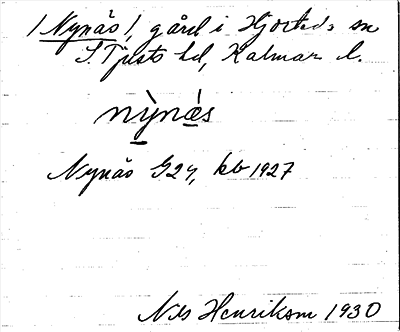 /Nynäs/, gård i Hjorteds sn
S. Tjusts hd, Kalmar l.
nỳnás
Nynäs G24, kb 1927
Nils Henrikson 1930